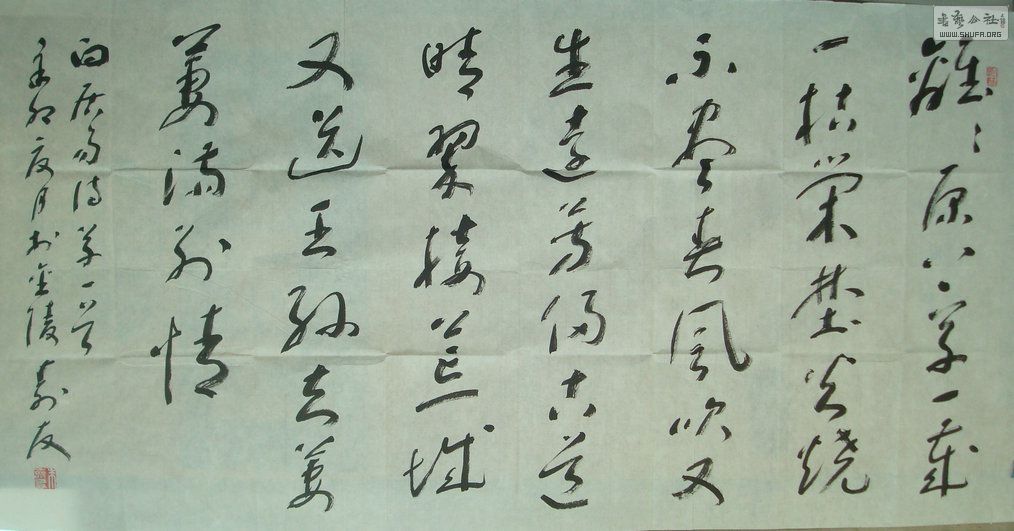 離〻原上草一歲
一枯榮野火燒
不盡春風吹又
生遠芳侵古道
晴翠接荒城
又送王孫去萋
萋滿別情
白居易詩草一首
辛卯夏月於金陵
書藝公社
WWW.SHUFA.ORG